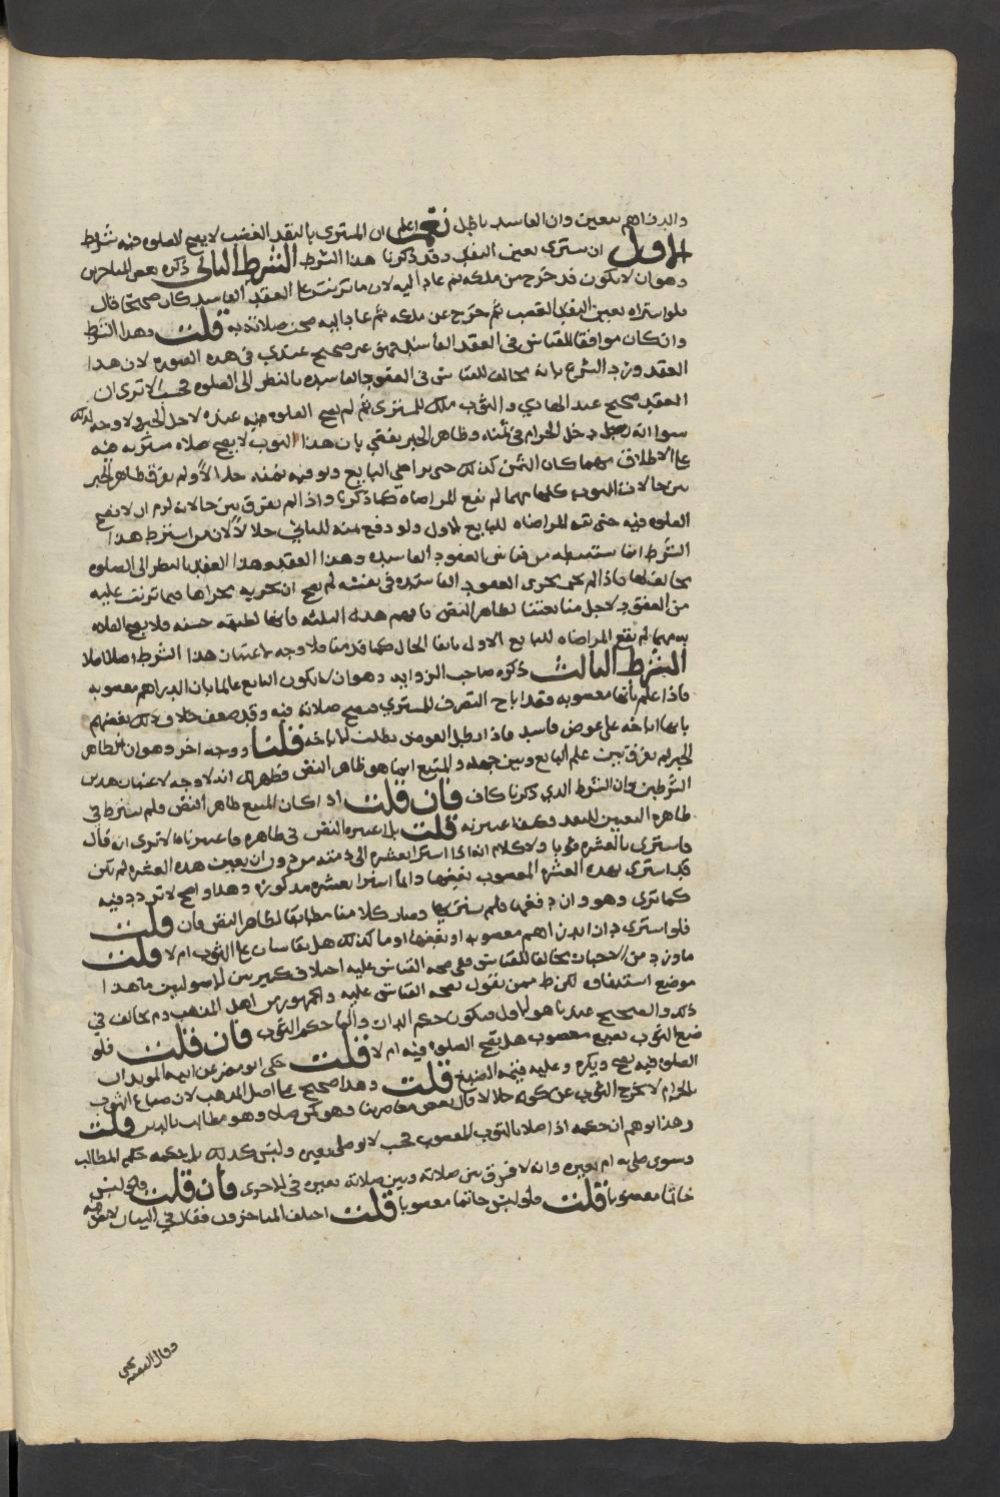 والدراهم تتعين وان الفاسد باطل نعم اعلم ان المشترى بالنقد الغصب لا يصح الصلوه فيه بشروط
الاول ان يشترى بعين النقد وقد ذكرنا هذا الشرط الشرط الثانى ذكره بعض المتاخرين
وهو ان لا يكون قد خرج من ملكه ثم عاد اليه لان ما ترتب على العقد الفاسد كان صحيحا قال
فلو اشتراه بعين النقد الغصب ثم خرج عن ملكه ثم عاد اليه صحت صلاته به قلت وهذا الشرط
وان كان موافقا للقياس فى العقد الفاسد فهو غير صحيح عندى فى هذه الصوره لان هذا
العقد ورد الشرع بانه مخالف للقياس فى العقود الفاسده بالنظر الى الصلوه فحسب الا ترى ان
العقد صحيح عند الهادي والثوب ملك للمشترى ثم لم تصح الصلوه فيه عنده لاجل الخبر ولا وجه لذلك
سوا انه دخل الحرام فى ثمنه وظاهر الخبر يقضي بان هذا الثوب لا يصح صلاه مشتريه فيه
على الاطلاق مهما كان الثمن كذلك حتى يراضي البايع ولو فيه بثمنه حلالا ولم يفرق ظاهر الخبر
بين حالات الثوب كلها مهما لم تقع المراضاه كما ذكرنا واذا لم يفرق بين حالاته لزم ان لا تصح
الصلوه فيه حتى تقع المراضاه للبايع الاول ولو دفع ثمنه للثاني حلالا لان من اشترط هذا
الشرط انما استنبطه من قياس العقود الفاسده وهذا العقد وهذا العقد بالنظر الى الصلوه
مخالف لها فاذا لم يجر مجرى العقود الفاسده فى نفسه لم يصح ان نجريه مجراها فيما ترتب عليه
من العقود لاجل منا بعتنا لظاهر النص فافهم هذه النكته فانها لطيفه حسنه فلا يصح الصلاه
به مهما لم تقع المراضاه للبايع الاول باى الحال كما قدمنا ولا وجه لاعتبار هذا الشرط اصلا
الشرط الثالث ذكره صاحب الزوايد وهو ان لا يكون البايع عالما بان الدراهم مغصوبه
فاذا علم بانها مغصوبه فقد اباح التصرف للمشتري فتصح صلاته فيه وقد ضعف خلاف ذلك بعضهم
بانها اباحه على عوض فاسد فاذا بطل العوض بطلت الاباحه قلنا ووجه اخر وهو ان الظاهر
الخبر لم يفرق بين علم البايع وبين جهله والمتبع انما هو ظاهر النص فظهر لك انه لا وجه لاعتبار هذين
الشرطين وان الشرط الذي ذكرنا كاف فان قلت اذا كان المتبع ظاهر النص فلم يشترط فى
ظاهره التعيين للنقد فكيف اعتبرته قلت بل اعتبره النص فى ظاهره فاعتبرناه الا ترى انه قال
فاشترى بالعشره ثوبا ولا كلام انه اذا اشترا بعشره الى ذمته من دون ان يعين هذه العشره لم يكن
قد اشترى بهذه العشره المغصوب بعضها وانما اشترا بعشره مذكوره وهذا واضح لا تردد فيه
كما ترى وهو وان دفعها فلم يشتر بها وصار كلامنا مطابقا لظاهر النص فان قلت
فلو اشترى دارا بدراهم مغصوبه او بعضها او ما كذلك هل يقاسان على الثوب ام لا قلت
ما ورد من الاحبار مخالفا للقياس ففى صحه القياس عليه اختلاف كبير بين الاصوليين ما هذا
موضع استيفاه لكن ط ممن نقول بصحه القياس عليه والجمهور من اهل المذهب وم يخالف فى
ذلك والصحيح عندنا هو الاول فيكون حكم الدار والما حكم الثوب فان قلت فلو
صبغ الثوب بصبغ مغصوب هل يصح الصلوه فيه ام لا قلت حكى ابو مضر عن ابيه المويد ان
الصلوه فيه تصح ويكره وعليه قيمة الصبغ قلت وهذا صحيح على اصل المذهب لان صباغ الثوب
بالحرام لا يخرج الثوب عن كونه حلالا قال بعض معاصرينا وهو كمن صلى وهو مطالب بالدين قلت
وهذا يوهم ان حكمه اذا صلا بالثوب المغصوب فحسب لا لو صلى بغيره وليس كذلك بل حكمه حكم المطالب
وسوى صلى به ام بغيره وانه لا فرق بين صلاته وبين صلاته بغيره فى الاجزى فان قلت فلو لبس
خاتما مغصوبا قلت فلو لبس خاتما مغصوبا قلت اختلف المتاخرون فقال فى البيان
وقال الفقيه يحيى